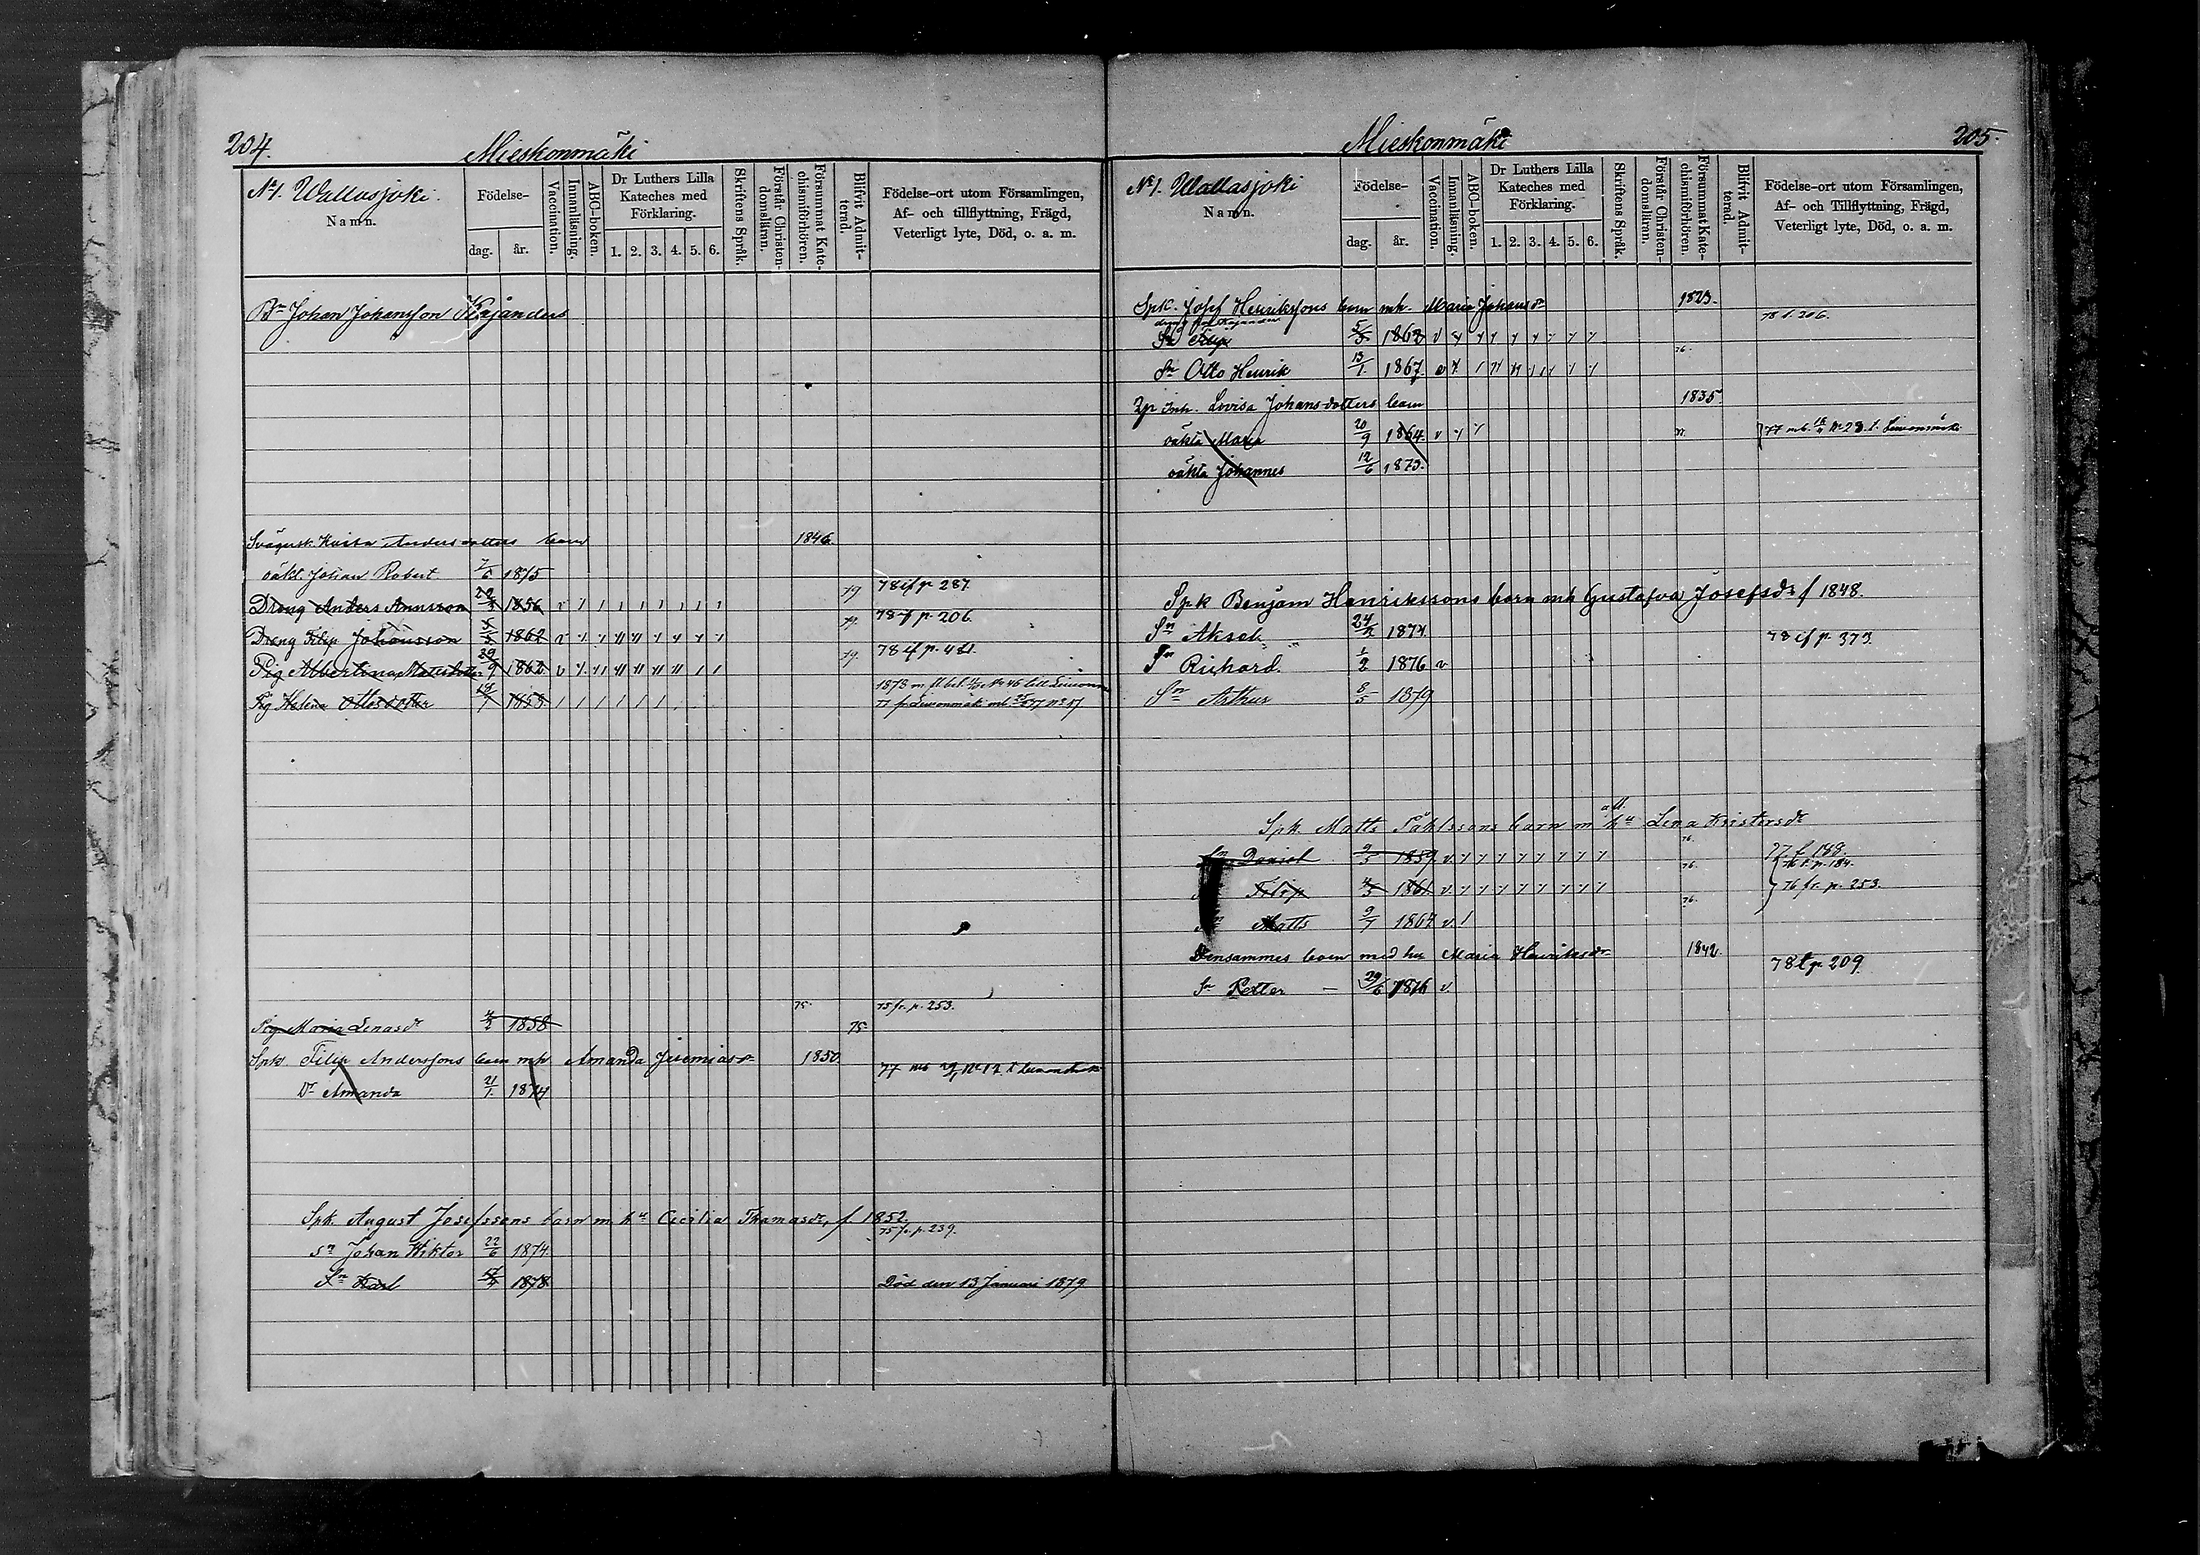 204.
Mieskonmäki
No 1. Wallasjoki.
Namn.
Födelse-
dag.
år.
Vaccination.
Innanläsning.
ABC-boken.
Dr Luthers Lilla
Kateches med
Förklaring.
1. 2. 3. 4. 5. 6.
Skriftens Språk.
Förstår Christen-
domsläran.
Försummat Kate-
chismiförhören.
Blifvit Admit-
terad.
Födelse-ort utom Församlingen,
Af- och tillflyttning, Frägd,
Veterligt lyte, Död, o. a. m.
Bn Johan Johansson Kajanders
Kaisa Andersdotters barn 1846.
oäkt. Johan Robert 7/6 1875
Dreng Anders Annsson 1856 79 78 if p. 287
Dreng Filip Johansson 1862 79. 78 if p. 206.
Pig Albertina Matsdotter 29/9 1862 79. 78 if p. 421.
Pig Helena Ottosdotter 1853
Pig Maria Lenasdr 1858 75. 75 75 fr. p. 253.
Spk. Filip Anderssons barn mh Amanda Jeremiasdr 1850
Dr Amanda 21/1 1874
Spk. August Josefssons barn m hu Cecilia Thomasdr, f 1852.
75 fr. p. 239.
Sn Johan Wiktor 22/6 1874.
Sn Karl 1878 Död den 13 Januari 1879
205.
Mieskonmäki
No 1. Wallasjoki
Namn.
Födelse-
dag.
år.
Vaccination.
Innanläsning.
ABC-boken.
Dr Luthers Lilla
Kateches med
Förklaring.
1. 2. 3. 4. 5. 6.
Skriftens Språk.
Förstår Christen-
domsläran.
Försummat Kate-
chismiförhören.
Blifvit Admit-
terad.
Födelse-ort utom Församlingen,
Af- och Tillflyttning, Frägd,
Veterligt lyte, Död, o. a. m.
Spk. Josef Henrikssons barn mh. Maria Johansdr 1823.
Sn Filip 5/3 1862 78 t. 206.
Sn Otto Henrik 13/1 1867 76.
Inh. Lovisa Johansdotters barn 1835.
oäkta Maria 20/9 1864
oäkta Johannes 12/6 1873.
Spk Benjam Henrikssons barn mh Gustafva Josefsdr f 1848.
Sn Aksel 1874 78 if p. 373
Sn Richard. 1/2 1876 v
Sn Arthur 8/5 1879
Spk. Matts Påhlssons barn m afl. hu Lena Kristersdr
Sn Daniel 9/5 1859 76. 77 f. 188.
76 t. p. 184.
Filip 1861 76. 76 fr. p. 253.
Sn Matts 9/7 1867 v. 76.
Densammes barn med hu Maria Henriksdr 1842 78 t p. 209
Sn Petter 29/6 1876 v.